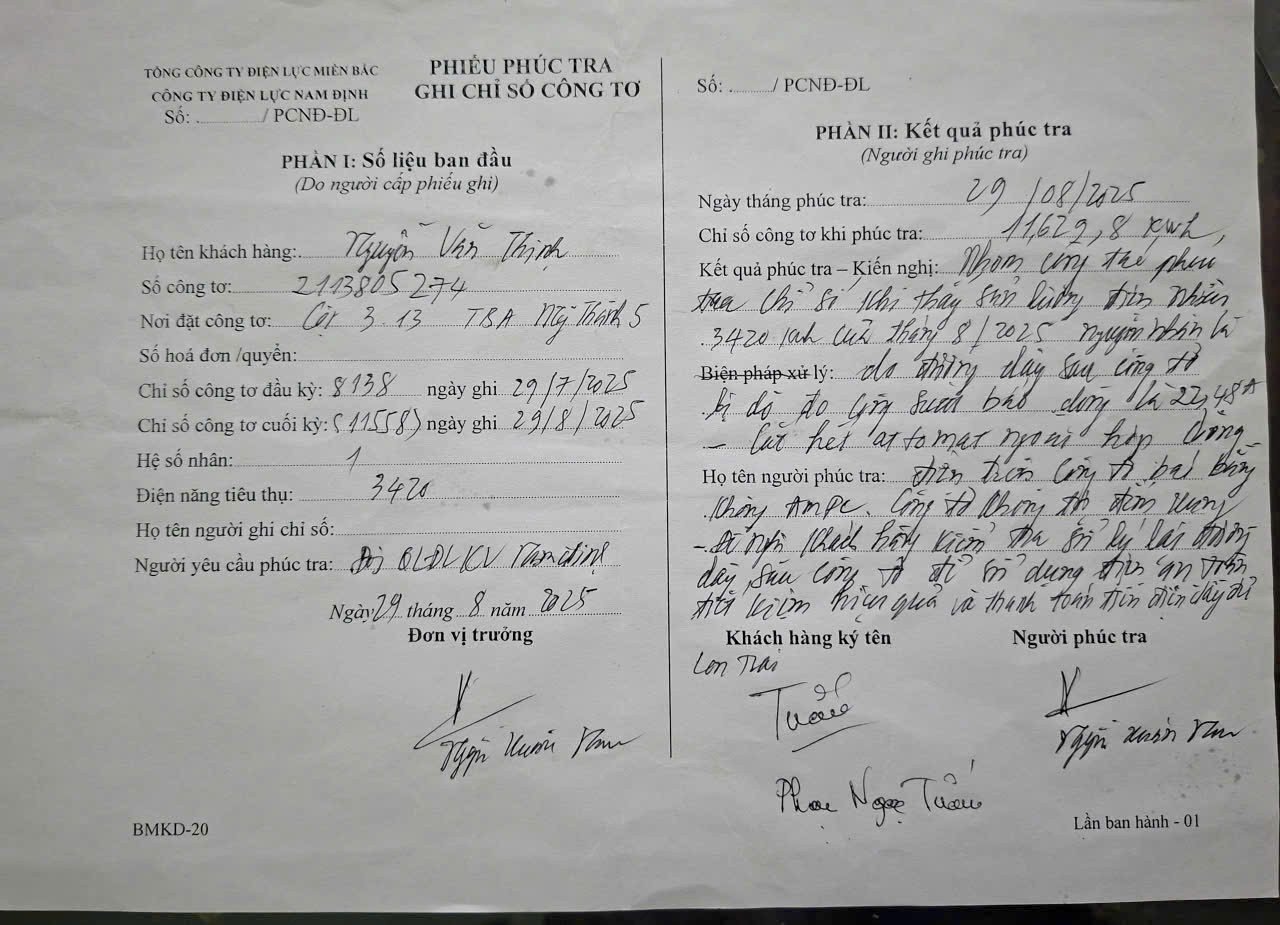 TỔNG CÔNG TY ĐIỆN LỰC MIỀN BẮC
CÔNG TY ĐIỆN LỰC NAM ĐỊNH
Số: ............/ PCNĐ-ĐL
PHIẾU PHÚC TRA
GHI CHỈ SỐ CÔNG TƠ
PHẦN I: Số liệu ban đầu
(Do người cấp phiếu ghi)
Họ tên khách hàng: Nguyễn Văn Thịnh
Số công tơ: 2113805274
Nơi đặt công tơ: Cột 3.13 TBA Mỹ Thành 5
Số hoá đơn /quyển:
Chỉ số công tơ đầu kỳ: 8138 ngày ghi 29/7/2025
Chỉ số công tơ cuối kỳ: (11558) ngày ghi 29/8/2025
Hệ số nhân: 1
Điện năng tiêu thụ: 3420
Họ tên người ghi chỉ số:
Người yêu cầu phúc tra: Đội QLĐL KV Nam định
Ngày 29 tháng 8 năm 2025
Đơn vị trưởng
Nguyễn Xuân
BMKD-20
Số: ........../ PCNĐ-ĐL
PHẦN II: Kết quả phúc tra
(Người ghi phúc tra)
Ngày tháng phúc tra: 29/08/2025
Chỉ số công tơ khi phúc tra: 11,629,8 kwh,
Kết quả phúc tra – Kiến nghị: Nhóm công tác phúc
tra chỉ số khi thấy sản lượng điện nhiều
3420 kwh của tháng 8/2025 nguyên nhân là
Biện pháp xử lý: do đường dây sau công tơ
bị dò đo công suất báo dòng là 22,48A
- Cắt hết attomat ngoài hộp Dòng
Họ tên người phúc tra: điện trên công tơ báo bằng
không AmPe. Công tơ không tới đếm xung
- Đề nghị khách hàng kiểm tra sử lý lại đường
dây sau công tơ để sử dụng điện an toàn
tiết kiệm hiệu quả và thanh toán tiền điện đầy đủ
Khách hàng ký tên
Con Trai
Tuấn
Phạm Ngọc Tuấn
Người phúc tra
Nguyễn Xuân
Lần ban hành - 01